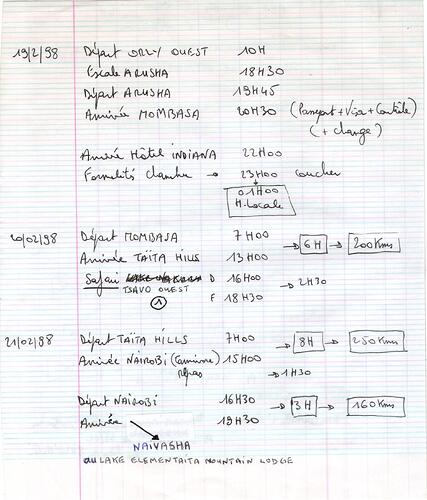 19/2/98 Départ ORLY OUEST 10H
Escale ARUSHA 18H30
Départ ARUSHA 19H45
Arrivée MOMBASA 20H30 (Passeport + Visa + Contrôle)
(+ change)
Arrivée Hôtel INDIANA 22H00
Formalités chambre → 23H00 coucher
01H00
H. Locale
20/02/98 Départ MOMBASA 7H00 → 6H → 200 Kms
Arrivée TAÏTA HILLS 13H00
Safari D 16H00 → 2H30
TSAVO OUEST
1 F 18H30
21/02/98 Départ TAÏTA HILLS 7H00 → 8H → 250 Kms
Arrivée NAIROBI (Carnivore) 15H00
Repas → 1H30
Départ NAIROBI 16H30 → 3H → 160 Kms
Arrivée 19H30
NAIVASHA
au LAKE ELEMENTAITA MOUNTAIN LODGE